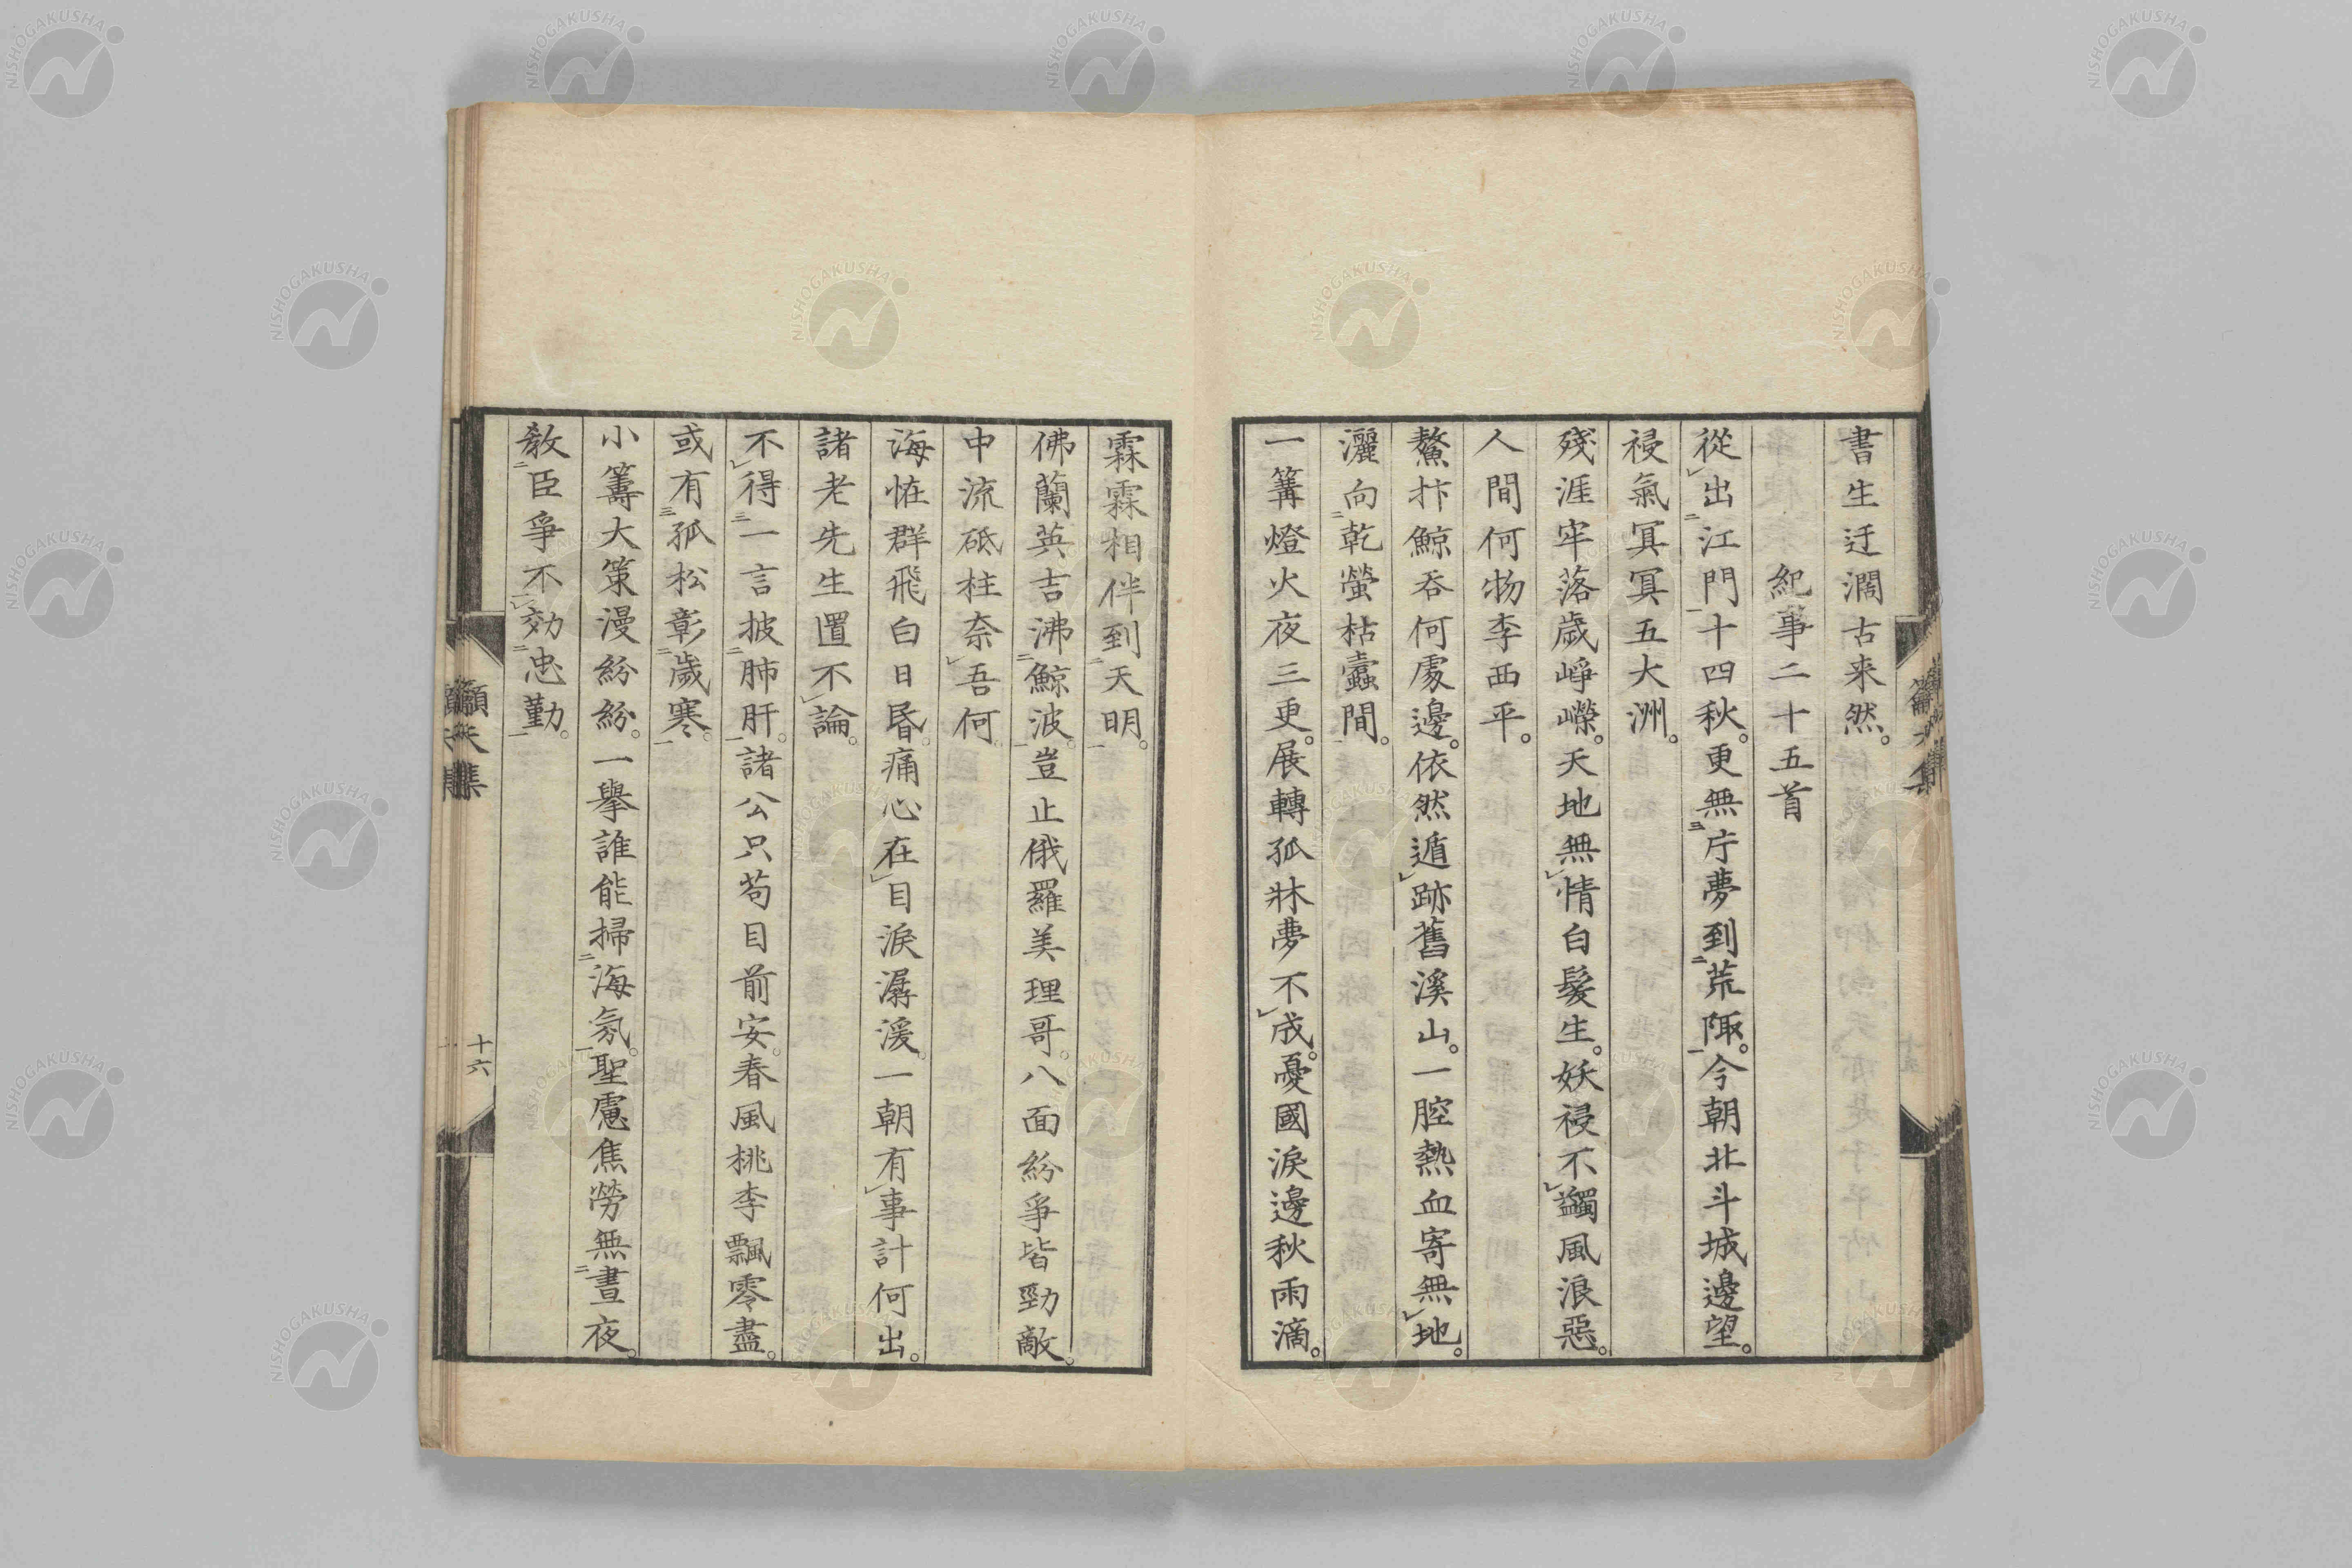 書生迂濶古来然。
紀事二十五首
從出江門十四秋。更無片夢到荒陬。今朝北斗城邊望。
祲氣冥冥五大洲。
殘涯牢落歳崢嶸。天地無情白髮生。妖祲不蠲風浪惡。
人間何物李西平。
鰲抃鯨吞何處邊。依然遁跡舊溪山。一腔熱血寄無地。
灑向乾螢枯蠹間。
一篝燈火夜三更。展轉孤牀夢不成。憂國淚邊秋雨滴。
霖霖相伴到天明。
佛蘭英吉沸鯨波。豈止俄羅美理哥。八面紛爭皆勁敵。
中流砥柱奈吾何
海恠群飛白日昏。痛心在目淚潺湲。一朝有事計何出。
諸老先生置不論。
不得一言披肺肝。諸公只苟目前安。春風桃李飄零盡。
或有孤松彰歲寒。
小籌大策漫紛紛。一擧誰能掃海氛。聖慮焦勞無晝夜。
教臣爭不効忠勤。
十六
NISHOGAKUSHA